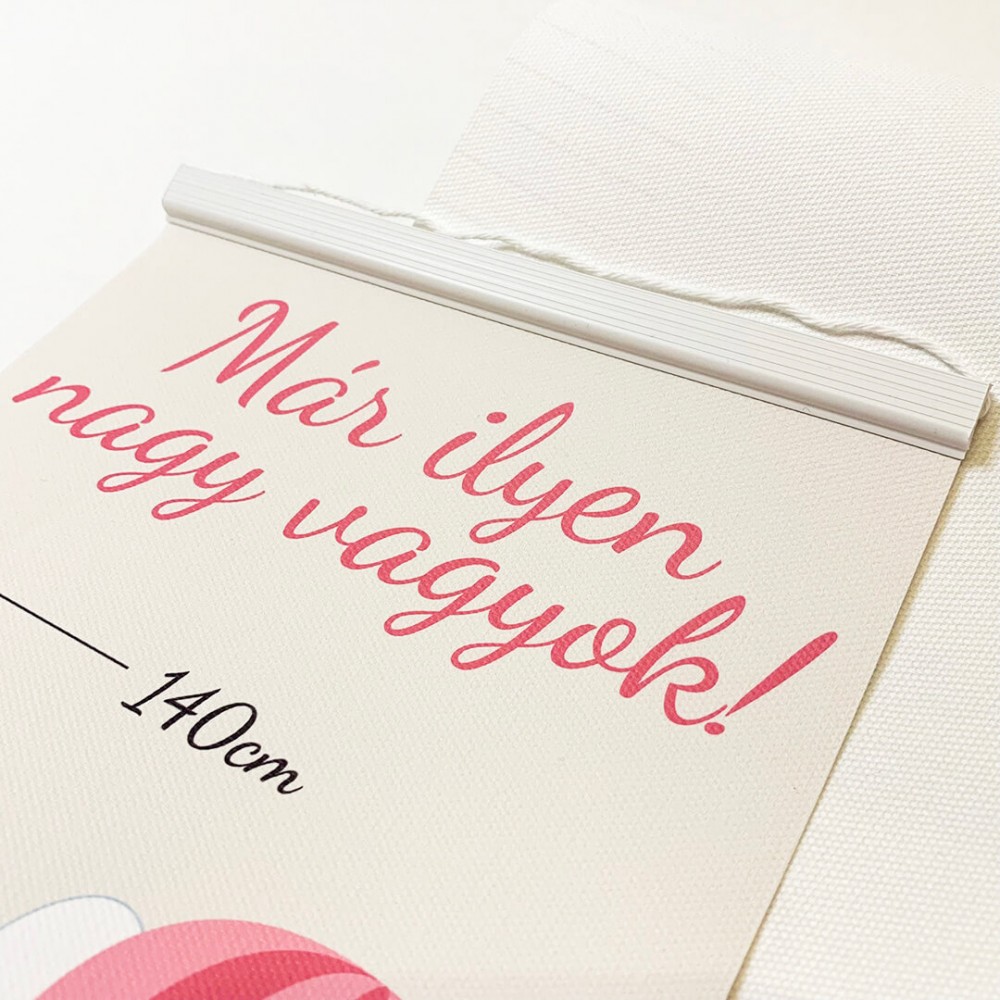 Már ilyen
nagy vagyok!
140cm